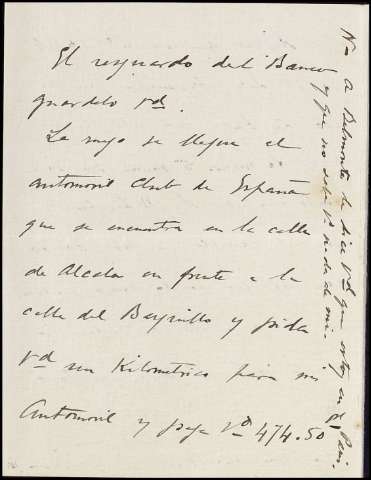 El resguardo del Banco
guardelo Vd.
La ruego se llegue el
automovil Club de España
que se encuentra en la calle
de Alcala en frente a la
calle del Barquillo y pida
Vd un Kilometrico para mi
Automovil y paga Vd 474.50
No a Belmonte le dice Vd que estoy en
y que no sabe Vd nada de mi.